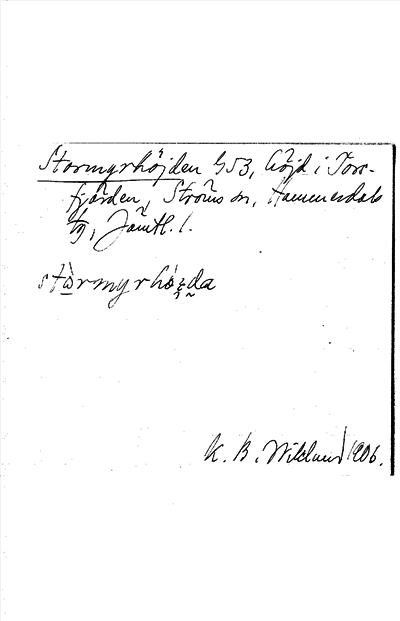 Stormyrhöjden 453, höjd i Tors-
fjärden, Ströms sn, Hammerdals
tg, Jämtl. l.
stὼrmyrhö̀ʒda
K. B. Wiklund 1906.